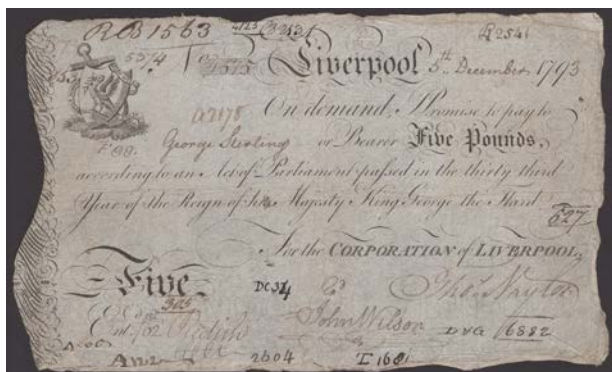 RB1563
5374
Liverpool 5th December 1793
a2178 On demand, I Promise to pay to
George Sterling or Bearer Five Pounds,
according to an Act of Parliament passed in the thirty third
Year of the Reign of his Majesty King George the Third
527
For the CORPORATION of LIVERPOOL,
Five
Ent.
John Wilson 6882
2604 I 1681